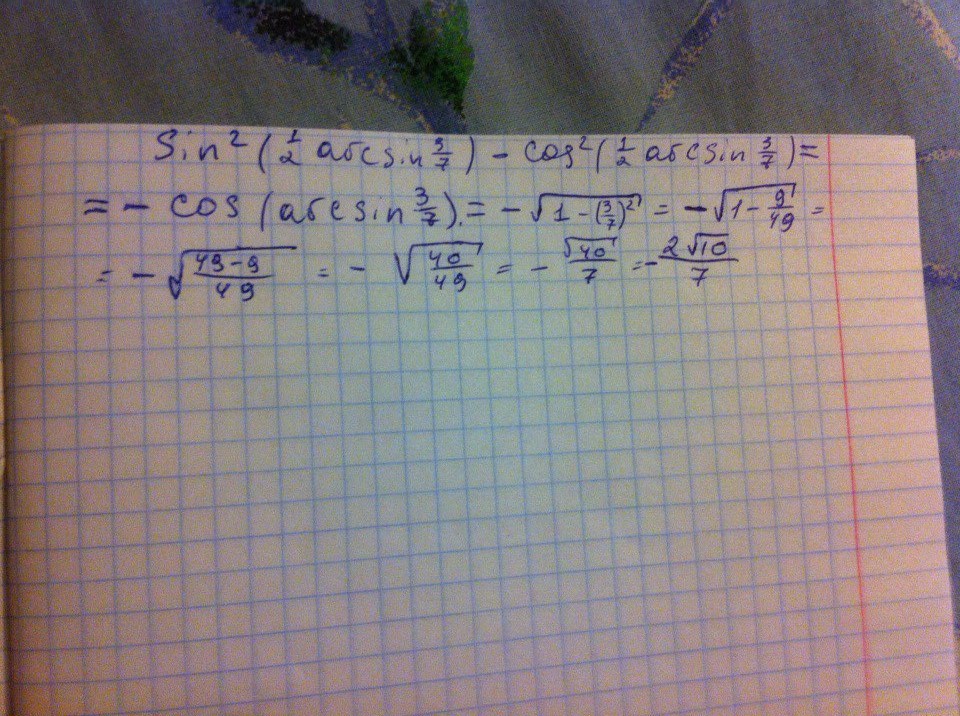 Sin² (1/2 arcsin 3/7) - cos² (1/2 arcsin 3/7) =
= - cos (arcsin 3/7) = - √(1 - (3/7)²) = - √(1 - 9/49) =
= - √((49-9)/49) = - √(40/49) = - √40/7 = - 2√10/7